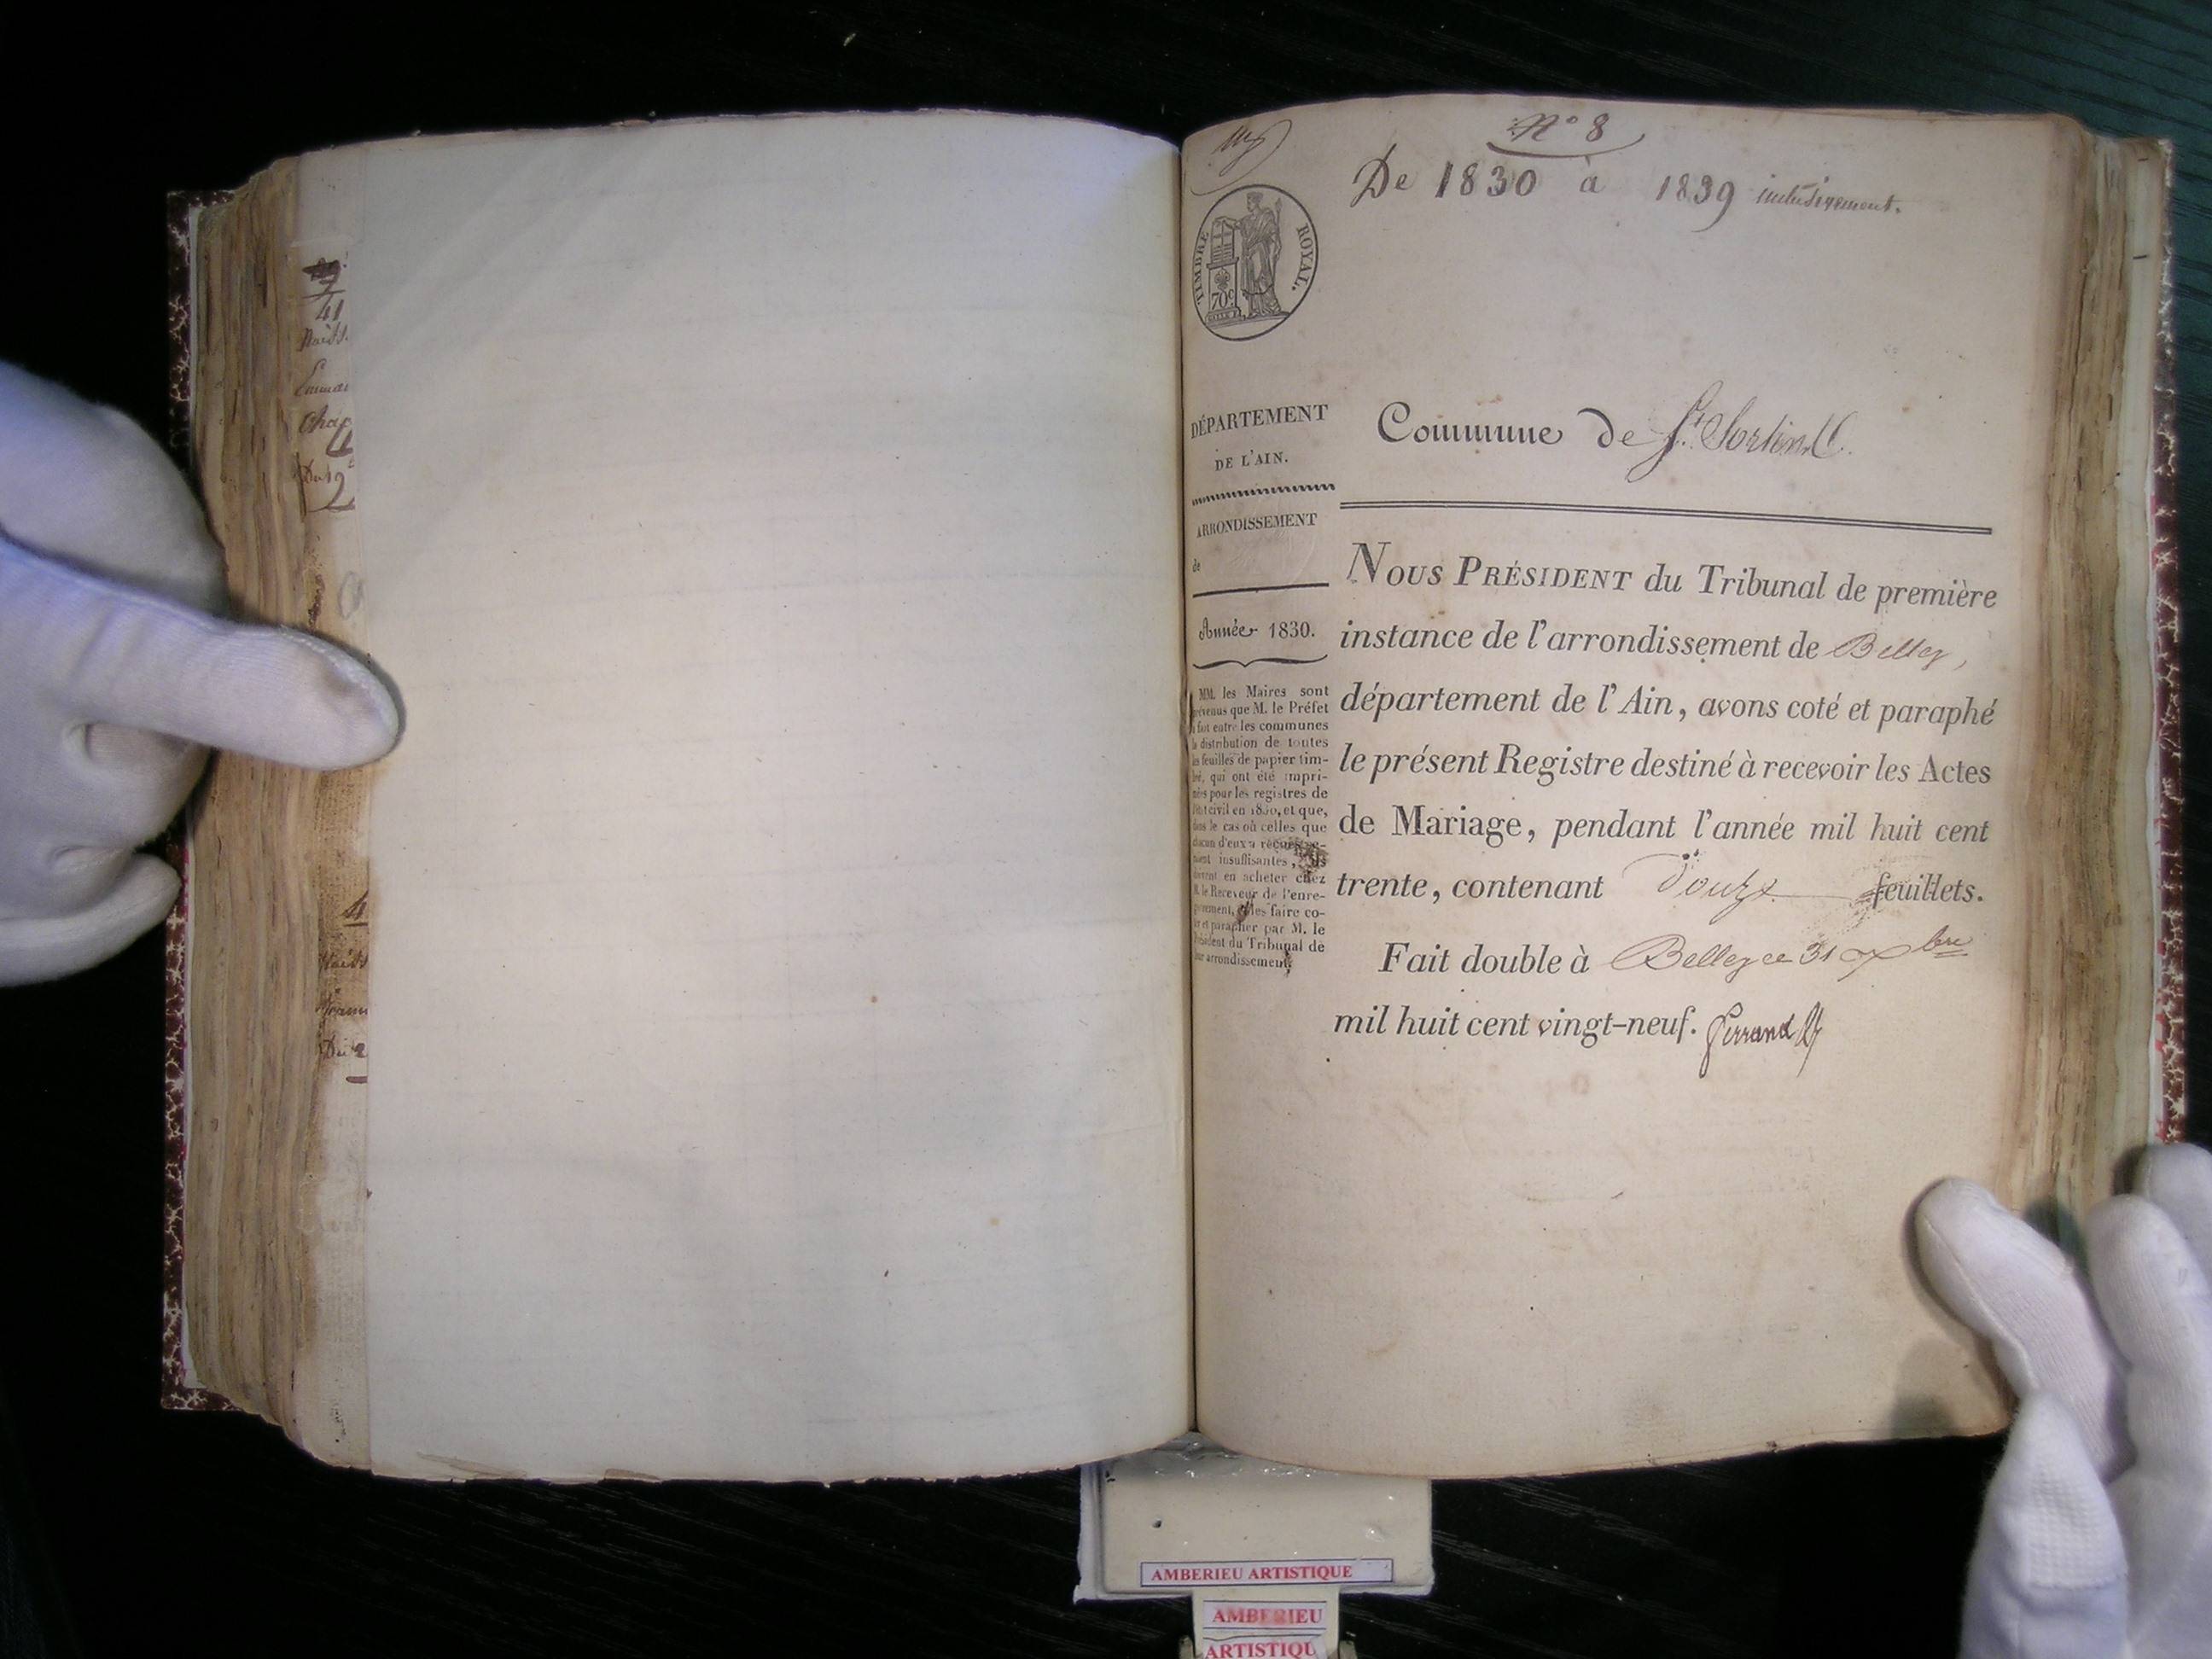 41
Naiss.
N° 8
De 1830 à 1839 inclusivement.
TIMBRE ROYAL.
70c
DÉPARTEMENT
DE L'AIN.
ARRONDISSEMENT
de
Année 1830.
MM. les Maires sont
prévenus que M. le Préfet
a fait entre les communes
la distribution de toutes
les feuilles de papier tim-
bré, qui ont été impri-
mées pour les registres de
l'état civil en 1830, et que,
dans le cas où celles que
chacun d'eux a reçues se-
raient insuffisantes, ils
doivent en acheter chez
M. le Receveur de l'enre-
gistrement, et les faire co-
ter et parapher par M. le
Président du Tribunal de
leur arrondissement.
Commune de St. Sorlin
NOUS PRÉSIDENT du Tribunal de première
instance de l'arrondissement de Belley,
département de l'Ain, avons coté et paraphé
le présent Registre destiné à recevoir les Actes
de Mariage, pendant l'année mil huit cent
trente, contenant Douze feuillets.
Fait double à Belley ce 31 xbre
mil huit cent vingt-neuf.
AMBERIEU ARTISTIQUE
AMBERIEU
ARTISTIQU